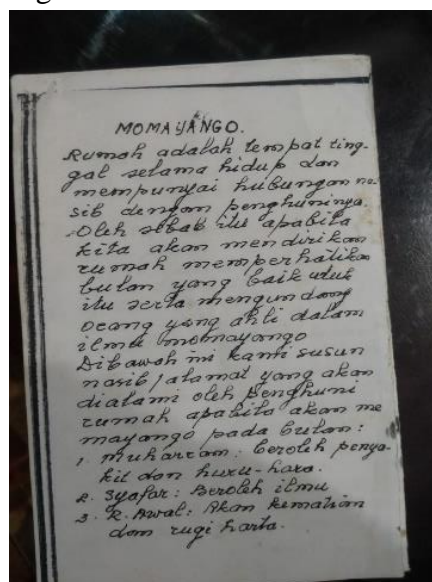 MOMAYANGO.
Rumah adalah tempat ting-
gal selama hidup dan
mempunyai hubungan na-
sib dengan penghuninya.
Oleh sebab itu apabila
kita akan mendirikan
rumah memperhatikan
bulan yang baik utuk
itu serta mengundang
orang yang ahli dalam
ilmu momayango
Dibawah ini kami susun
nasib/alamat yang akan
dialami oleh penghuni
rumah apabila akan me
mayango pada bulan:
1. Muharram: beroleh penya-
kit dan huru-hara.
2. Syafar: Beroleh ilmu
3. R. Awal: Akan kematian
dan rugi harta.